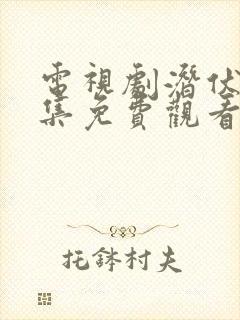 電視劇潛伏
集免費觀看
托鉢村夫